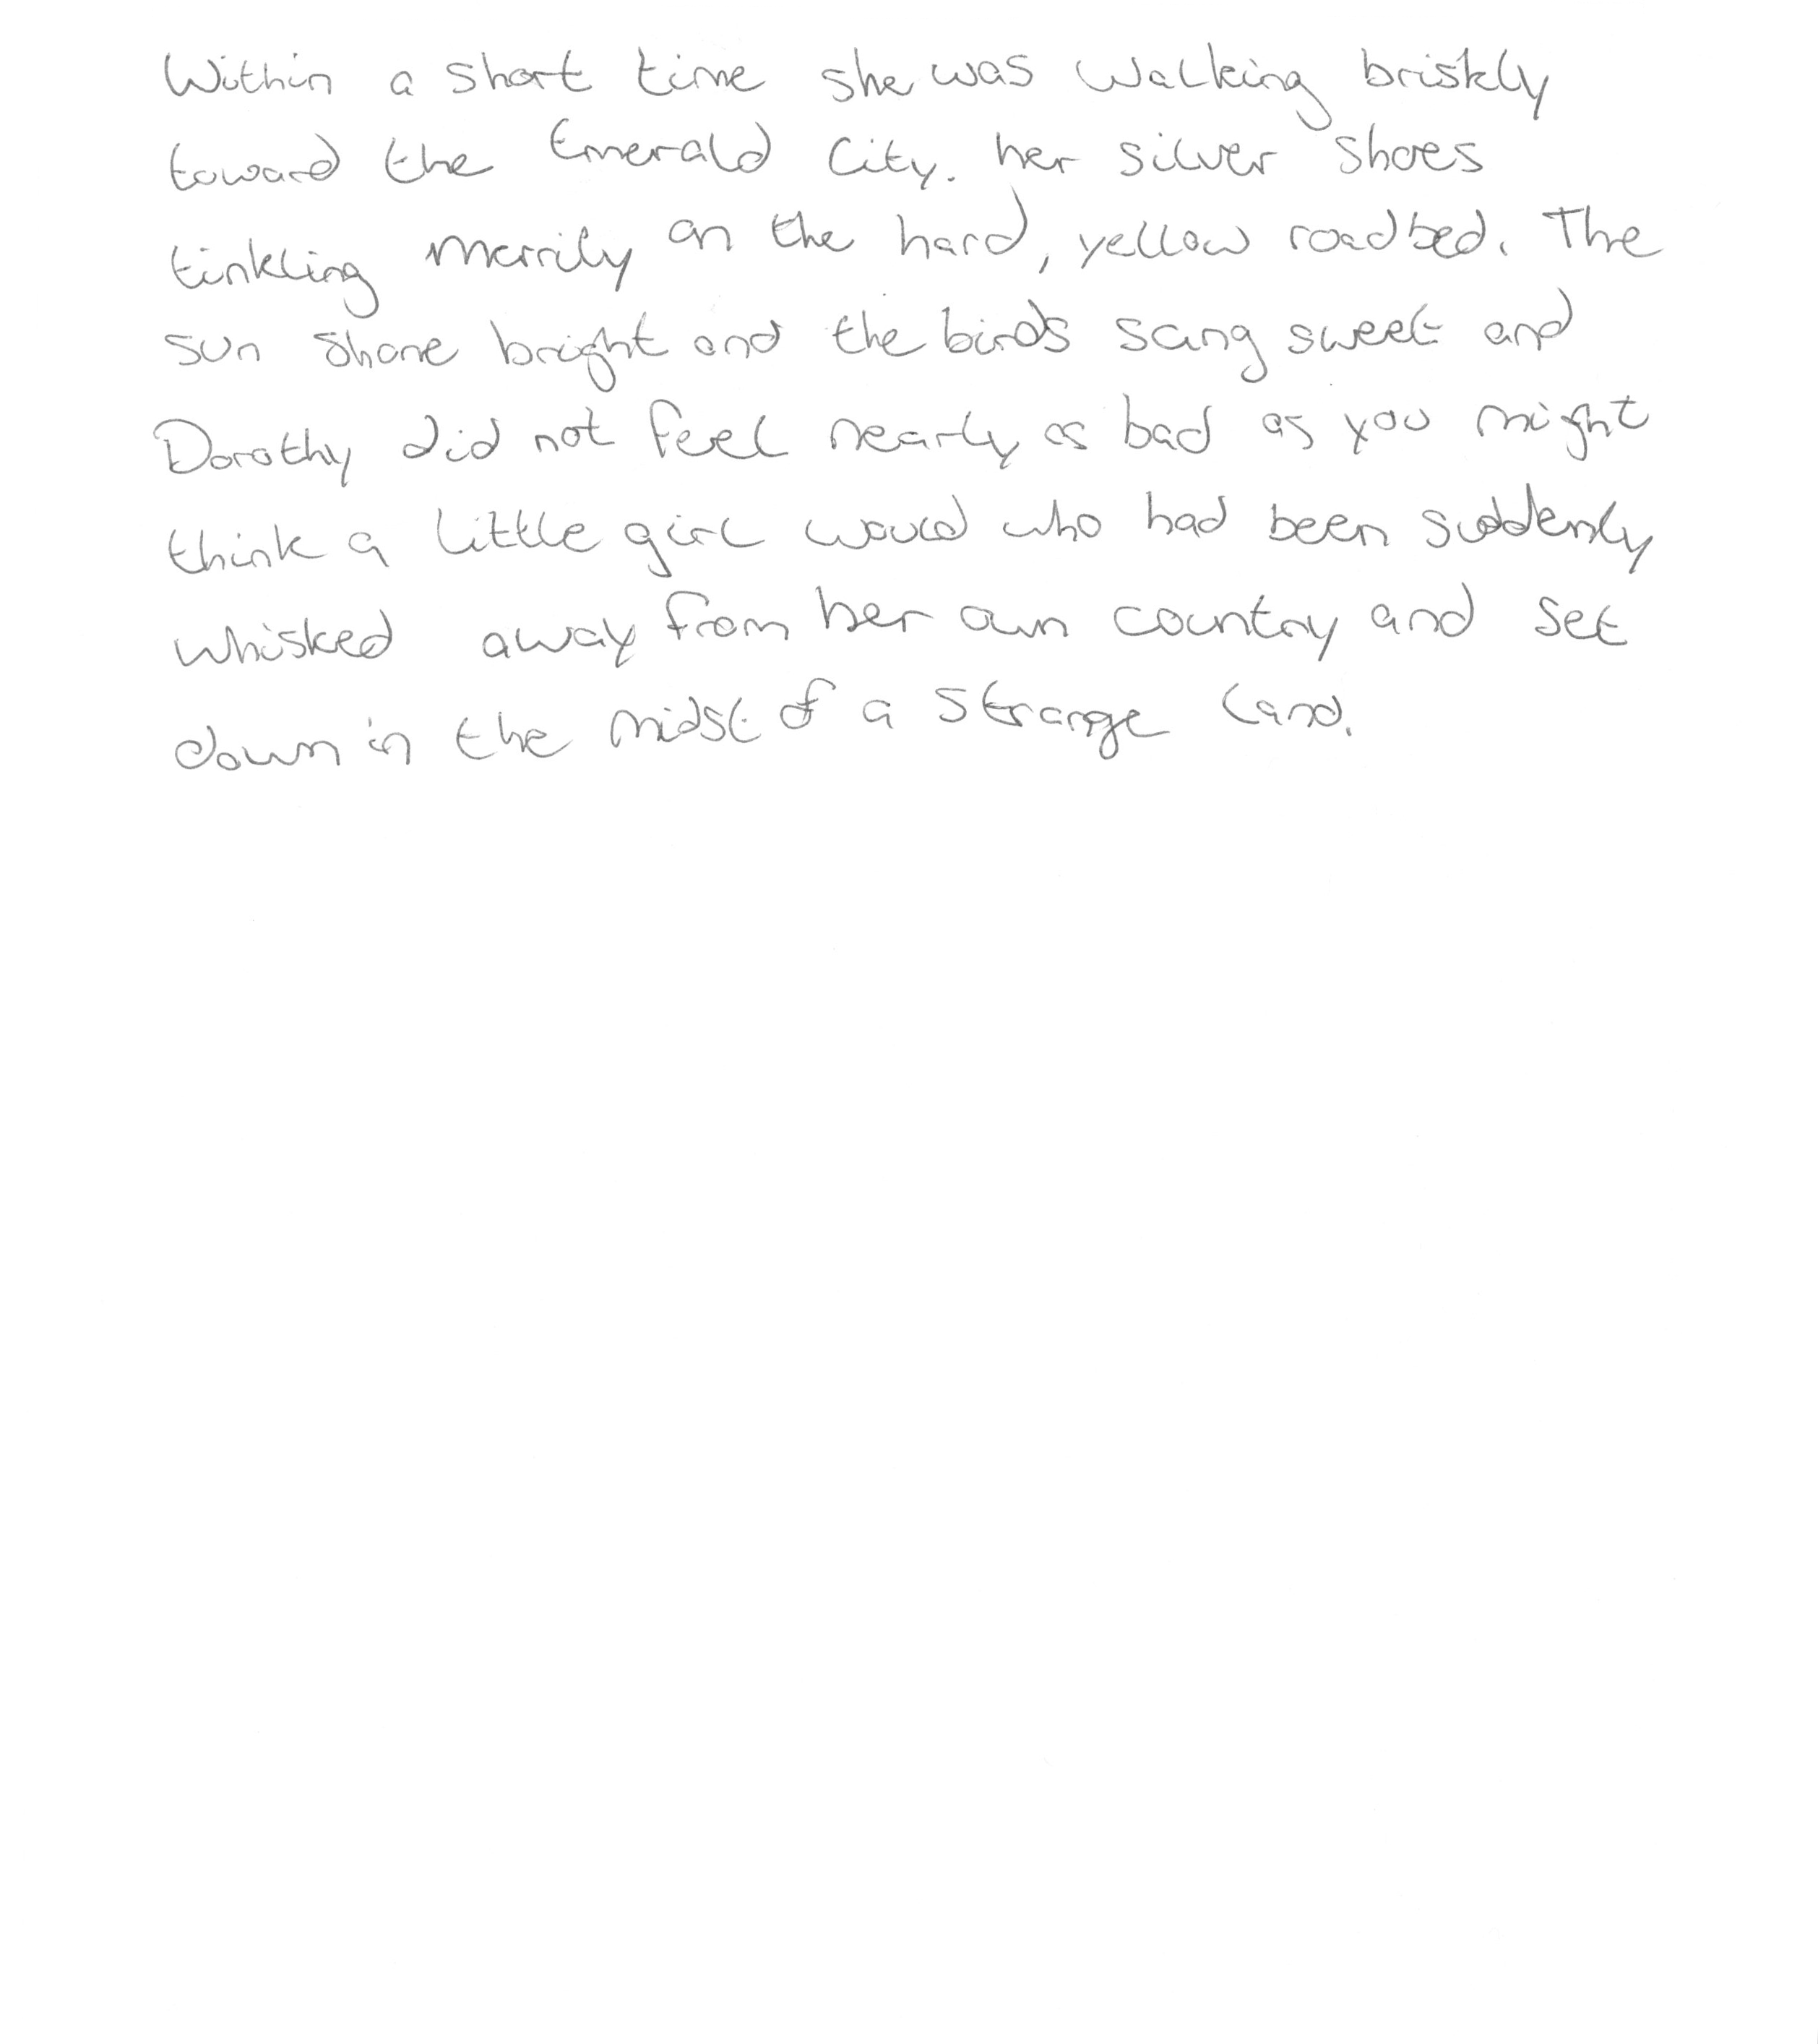 Within a short time she was walking briskly
toward the Emerald City. her silver shoes
tinkling merrily on the hard, yellow roadbed. The
sun shone bright and the birds sang sweet and
Dorothy did not feel nearly as bad as you might
think a little girl would who had been suddenly
whisked away from her own country and set
down in the midst of a strange land.